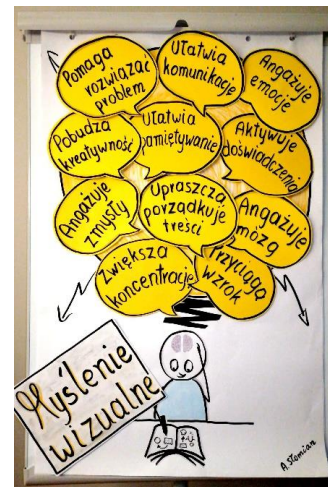 Pomaga
rozwiązać
problem
Ułatwia
komunikację
Angażuje
emocje
Pobudza
kreatywność
Ułatwia
pamiętywanie
Aktywuje
doświadczenia
Angażuje
zmysły
Upraszcza
porządkuje
treści
Angażuje
mózg
Zwiększa
koncentrację
Przyciąga
wzrok
Myślenie
wizualne
A. Słomian